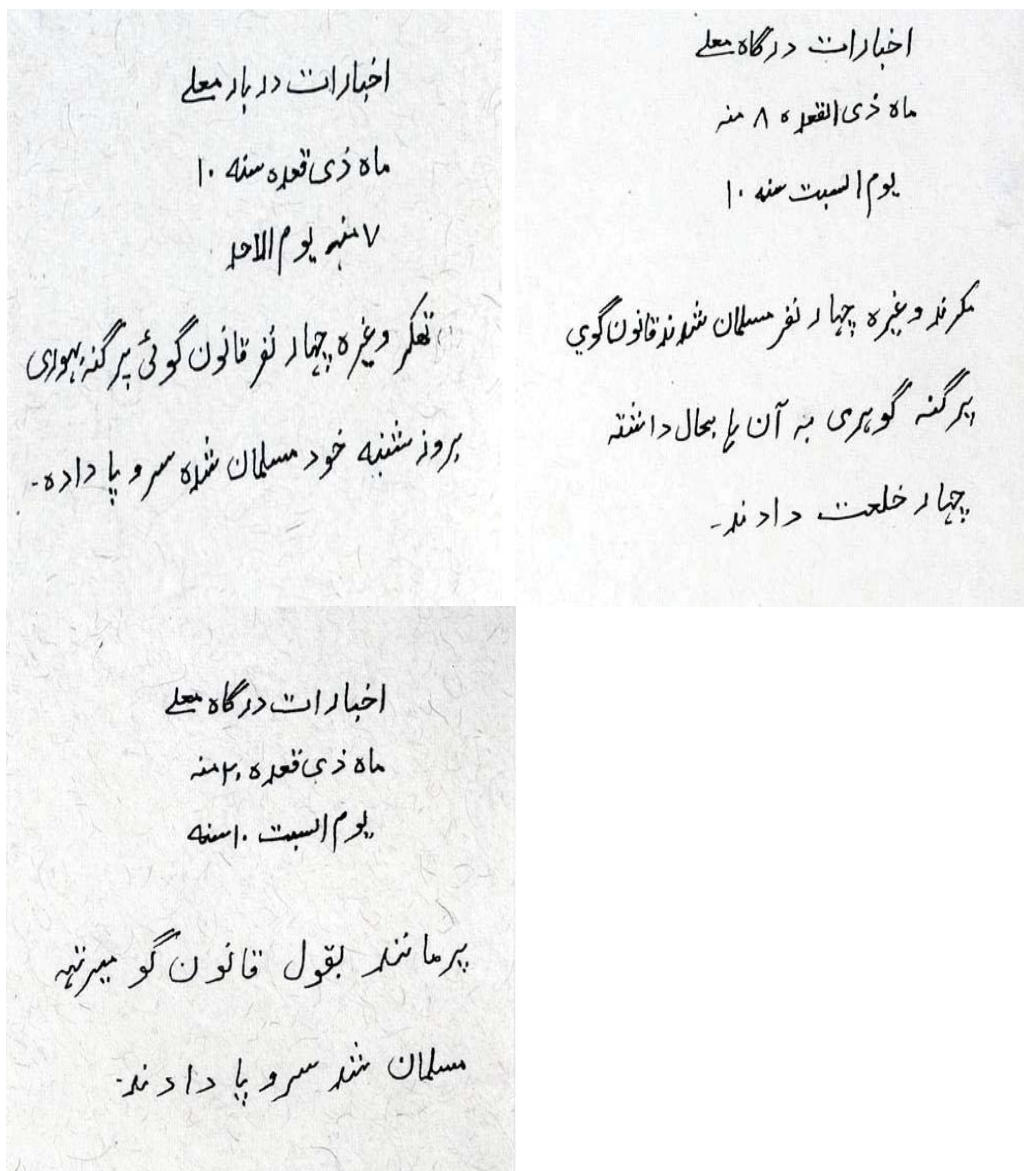 اخبارات دربار معلے
ماه ذی قعده سنه ۱۰
۷ منہ یوم الاحد
وغیره چهار نفر قانون گوئی پرگنہ بہوری
بروز شنبه خود مسلمان شده سر و پا داده۔
اخبارات درگاه معلے
ماه ذی القعده ۸ منہ
یوم السبت سنه ۱۰
مکرند وغیره چهار نفر مسلمان شدند قانون گوي
پرگنہ گوہری بہ آن ہا بحال داشتہ
چهار خلعت دادند۔
اخبارات درگاه معلے
ماه ذی قعده ۲۰ منہ
یوم السبت ۱۰ سنه
پرمانند بقول قانون گو میرٹھ
مسلمان شد سر و پا دادند۔